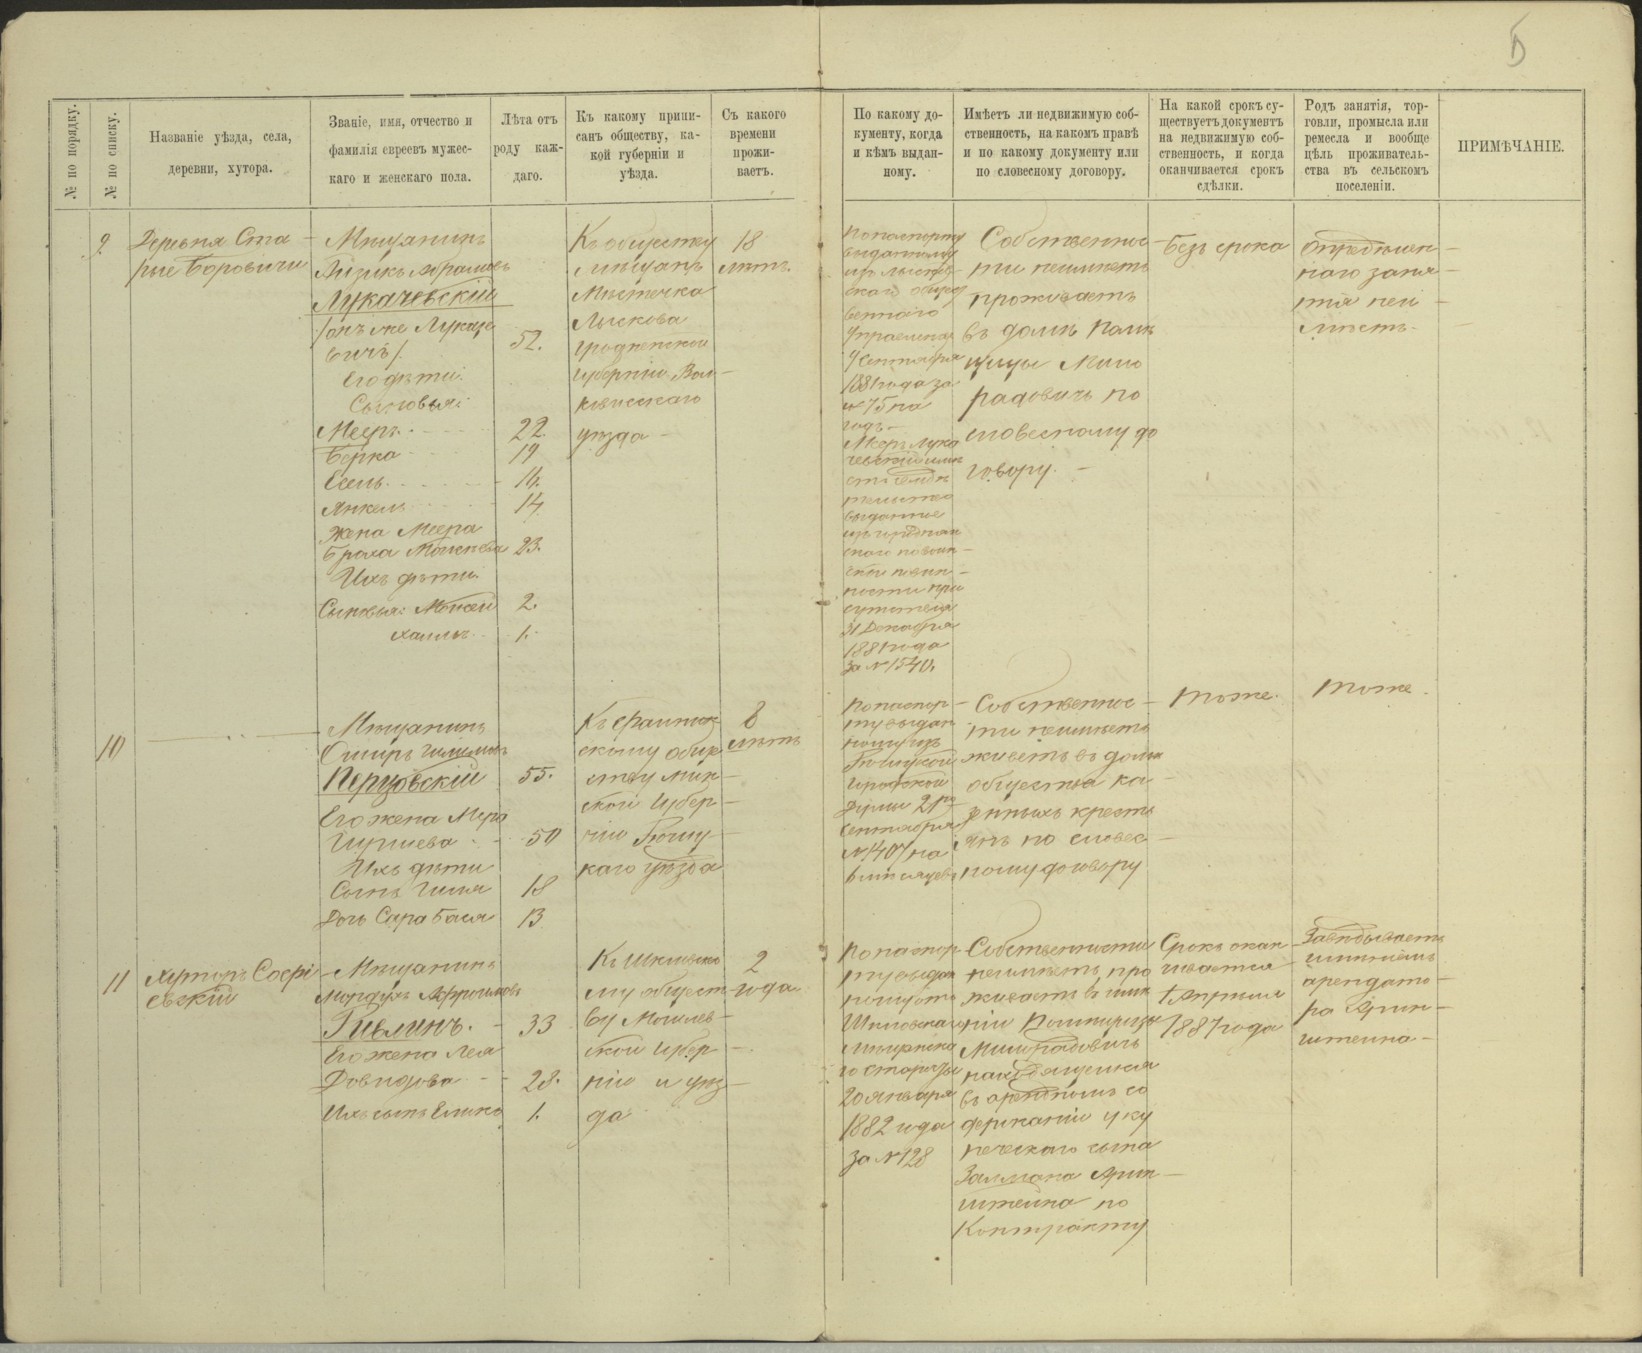 № по порядку.
№ по списку.
Названіе уѣзда, села,
деревни, хутора.
Званіе, имя, отчество и
фамилія евреевъ мужес-
каго и женскаго пола.
Лѣта отъ
роду каж-
даго.
Къ какому припи-
санъ обществу, ка-
кой губерніи и
уѣзда.
Съ какого
времени
прожи-
ваетъ.
По какому до-
кументу, когда
и кѣмъ выдан-
ному.
Имѣетъ ли недвижимую соб-
ственность, на какомъ правѣ
и по какому документу или
по словесному договору.
На какой срокъ су-
ществуетъ документъ
на недвижимую соб-
ственность, и когда
оканчивается срокъ
сдѣлки.
Родъ занятія, тор-
говли, промысла или
ремесла и вообще
цѣль проживатель-
ства въ сельскомъ
поселеніи.
ПРИМѢЧАНІЕ.
9
Деревня Ста-
рые Боровичи
Мѣщанинъ
Айзикъ Абрамовъ
Лукачевскій
/онъ же Лукаше
вичъ/ 52.
Его дѣти:
Сыновья:
Мееръ 22
Берка 19
Есель 16.
Янкель 14
Жена Меера
Броха Моисеева 23.
Ихъ дѣти:
Сыновья: Моисей 2.
Хаимъ 1.
Къ обществу
мѣщанъ
Мѣстечка
Лыскова
Гродненской
губерніи Вол-
ковискаго
уѣзда
18
лѣтъ.
По паспорту
выданному
изъ Лысков-
скаго общес
веннаго
Управленія
9 Сентября
1881 года за
№ 75 на
годъ
Мееръ Лука
чевскій имѣ
етъ свидѣ
тельство
выданное
изъ Городнян
скаго по воин-
ской повин-
ности при
сутствія
31 Декабря
1881 года
за № 1540.
Собственнос-
ти неимѣетъ
проживаетъ
въ домѣ Помѣ
щицы Мило
радовичъ по
словесному до
говору.
Безъ срока
Опредѣлен-
наго заня-
тія неи-
мѣетъ
10
Мѣщанинъ
Ошеръ Гилелевъ
Перцовскій 55.
Его жена Мера
Гиршева 50
Ихъ дѣти
Сынъ Гиля 18
Дочь Сара Бася 13
скому обще
ству Мин-
ской губер-
ніи Рѣчиц-
каго уѣзда
8
лѣтъ
По паспор-
ту выдан
ному изъ
Рѣчицкой
Городской
Думы 21го
Сентября
№ 1407 на
6 мѣсяцевъ
Собственнос-
ти неимѣетъ
живетъ въ домѣ
общества ка-
зенныхъ кресть
янъ по словес-
ному договору
Тоже.
Тоже.
11
Хуторъ Софі
евскій
Мѣщанинъ
Мордухъ Афроимовъ
Ривлинъ. 33
Его жена Лея
Довидова 28.
Ихъ сынъ 1.
Къ Шкловско
му общест-
ву Могилев-
ской губер-
ніи и уѣз-
да
2
года
По паспор-
ту выдан
ному отъ
Шкловскаго
Мѣщанска
го старосты
20 Января
1882 года
за № 128
Собственности
неимѣетъ, про
живаетъ въ имѣ
ніи Помѣщицы
Милорадовичъ
находящемся
въ арендномъ со
держаніи у ку
печескаго сына
Залмана Арин-
штейна по
Контракту
Срокъ окан-
чивается
1 Апрѣля
1887 года
Завѣдываетъ
имѣніемъ
арендато-
ра Арин-
штейна